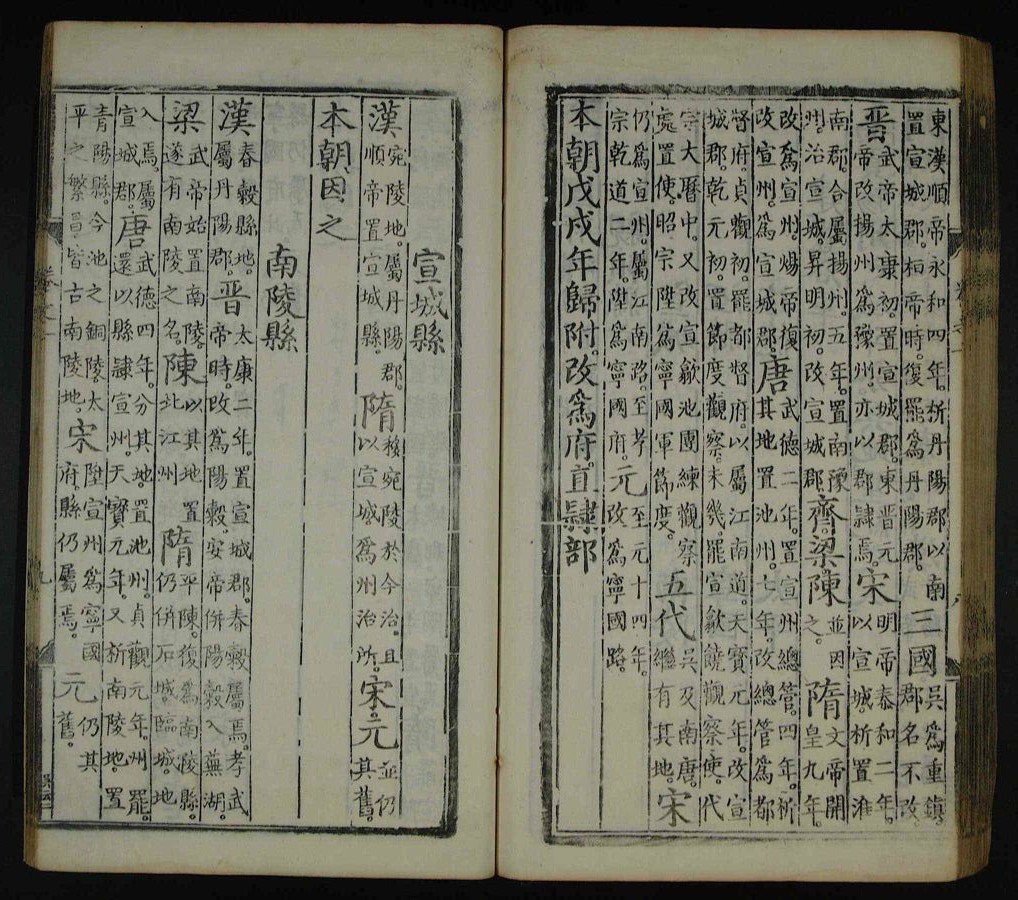 東漢順帝永和四年。析丹陽郡以南
置宣城郡。桓帝時。復罷爲丹陽郡。
三國
吳爲重鎮。
郡名不改
晉
武帝太康初。置宣城郡。東晉元
帝改揚州爲豫州。亦以郡隸焉。
宋
明帝泰和二年。
以宣城。析置淮
南郡。合屬揚州。五年。置南豫
州。治宣城。昇明初。改宣城郡
齊。梁陳
並因
之。
隋
文帝開
皇九年。
改爲宣州。煬帝復
改宣州。爲宣城郡
唐
武德二年。置宣州總管。四年。析
其地置池州。七年。改總管爲都
督府。貞觀初。罷都督府。以屬江南道。天寶元年。改宣
城郡。乾元初。置節度觀察。未幾。罷宣歙饒觀察使。代
宗大曆中。又改宣歙池團練觀察
處置使。昭宗陞爲寧國軍節度。
五代
吳及南唐。
繼有其地。
宋
仍爲宣州。屬江南路。至孝
宗乾道二年。陞爲寧國府。
元
至元十四年。
改爲寧國路。
本朝戊戌年歸附。改爲府。直隸部
宣城縣
漢
宛陵地。屬丹陽郡。
順帝置宣城縣。
隋
移宛陵於今治。且
以宣城爲州治所。
宋。元
並仍
其舊。
本朝因之
南陵縣
漢
春穀縣地。
屬丹陽郡。
晉
太康二年。置宣城郡。春穀屬焉。孝武
帝時。改爲陽穀。安帝併陽穀入蕪湖。
梁
武帝始置南陵。
遂有南陵之名。
陳
以其地置
北江州
隋
平陳。復爲南陵縣。
仍併石城。臨城。地
入焉。屬
宣城郡。
唐
武德四年。分其地置池州。貞觀元年。州罷。
還以縣隸宣州。天寶元年。又析南陵地。置
青陽縣。今池之銅陵。太
平之繁昌。皆古南陵地。
宋
陞宣州爲寧國
府。縣仍屬焉。
元
仍其
舊。
卷之一
九